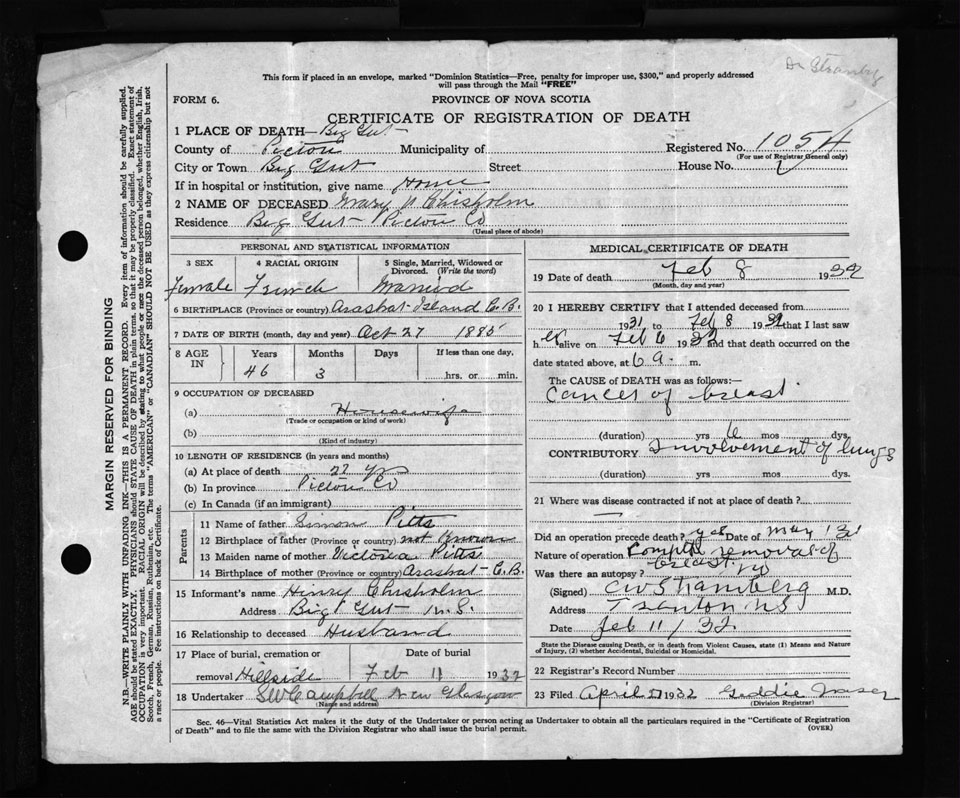 Dr Stramberg
This form if placed in an envelope, marked "Dominion Statistics—Free, penalty for improper use, $300," and properly addressed
will pass through the Mail "FREE"
FORM 6.
PROVINCE OF NOVA SCOTIA
CERTIFICATE OF REGISTRATION OF DEATH
1 PLACE OF DEATH— Big Gut
County of Pictou Municipality of Registered No. 1054
(For use of Registrar General only)
City or Town Big Gut Street House No.
If in hospital or institution, give name Home
2 NAME OF DECEASED Mary Chisholm
Residence Big Gut Pictou Co
(Usual place of abode)
PERSONAL AND STATISTICAL INFORMATION
3 SEX 4 RACIAL ORIGIN 5 Single, Married, Widowed or Divorced. (Write the word)
Female French Married
6 BIRTHPLACE (Province or country) Arashat Island C.B.
7 DATE OF BIRTH (month, day and year) Oct 27 1885
8 AGE IN Years Months Days If less than one day,
46 3 hrs. or min.
9 OCCUPATION OF DECEASED
(a) Housewife
(Trade or occupation or kind of work)
(b)
(Kind of industry)
10 LENGTH OF RESIDENCE (in years and months)
(a) At place of death 27 yrs
(b) In province Pictou Co
(c) In Canada (if an immigrant)
Parents
11 Name of father Simon Pitts
12 Birthplace of father (Province or country) not known
13 Maiden name of mother Victoria Pitts
14 Birthplace of mother (Province or country) Arashat - C.B.
15 Informant's name Hinry Chisholm
Address Big Gut N.S.
16 Relationship to deceased Husband
17 Place of burial, cremation or Date of burial
removal Hillside Feb 11 1932
18 Undertaker SW Campbell New Glasgow
(Name and address)
MEDICAL CERTIFICATE OF DEATH
19 Date of death Feb 8 1932
(Month, day and year)
20 I HEREBY CERTIFY that I attended deceased from
1931 to Feb 8 1932 that I last saw
her alive on Feb 6 1932 and that death occurred on the
date stated above, at 6 a. m.
The CAUSE of DEATH was as follows:—
Cancer of breast
(duration) yrs 6 mos dys.
CONTRIBUTORY Involvement of lungs
(duration) yrs. mos. dys.
21 Where was disease contracted if not at place of death?
Did an operation precede death? yes Date of May 31
Nature of operation Complete removal of
breast
Was there an autopsy? no
(Signed) CW Stramberg M.D.
Address Trenton NS
Date Feb 11/32
State the Disease causing Death, or in death from Violent Causes, state (1) Means and Nature
of Injury, (2) whether Accidental, Suicidal or Homicidal.
22 Registrar's Record Number
23 Filed April 1932
(Division Registrar)
Sec. 46—Vital Statistics Act makes it the duty of the Undertaker or person acting as Undertaker to obtain all the particulars required in the "Certificate of Registration
of Death" and to file the same with the Division Registrar who shall issue the burial permit. (OVER)
MARGIN RESERVED FOR BINDING
N.B.—WRITE PLAINLY WITH UNFADING INK—THIS IS A PERMANENT RECORD. Every item of information should be carefully supplied.
AGE should be stated EXACTLY. PHYSICIANS should STATE CAUSE OF DEATH in plain terms, so that it may be properly classified. Exact statement of
OCCUPATION is very important. RACIAL ORIGIN will be described by stating to what people or race the deceased person belonged, whether English, Irish,
Scotch, French, German, Russian, Ruthenian, etc. The terms "AMERICAN" or "CANADIAN" SHOULD NOT BE USED as they express citizenship but not
a race or people. Fee instructions on back of Certificate.